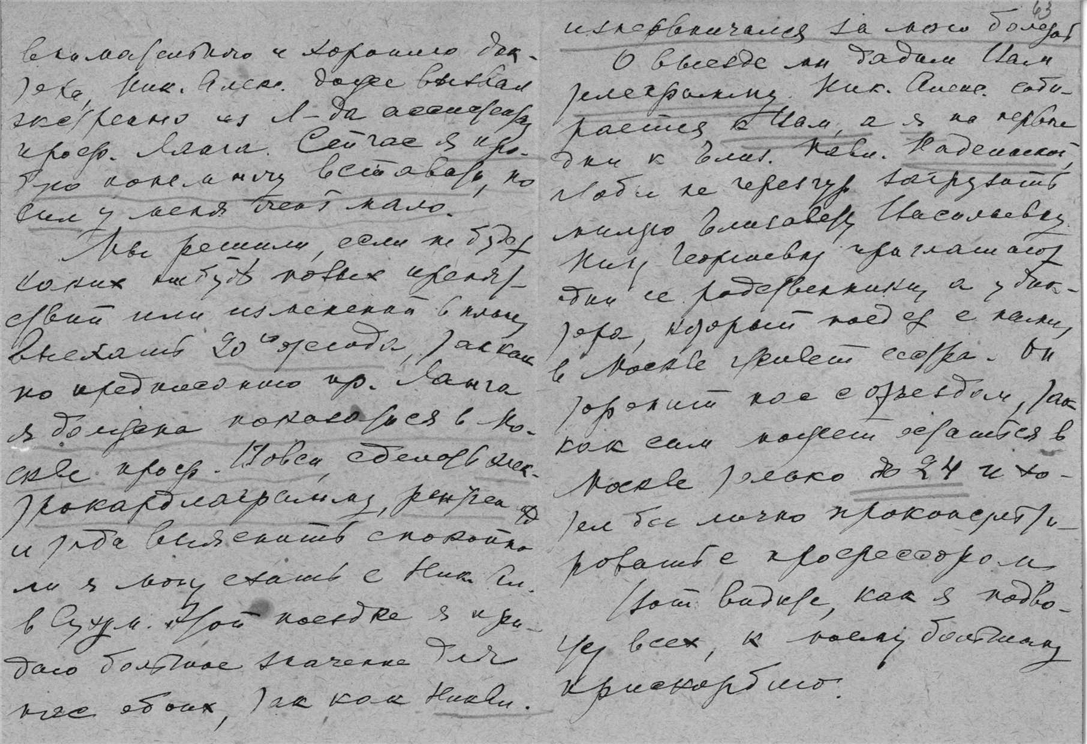 внимательного и хорошего док-
тора, Ник. Алек. даже вызвал
экстренно из Л-да ассистента
проф. Ланга. Сейчас я про-
бую понемногу вставать, но
сил у меня очень мало.
Мы решили, если не будет
каких нибудь новых препят-
ствий или изменений в плане
выехать 20го, так как
по предписанию пр. Ланга
я должна показаться в Мо-
скве проф. сделать элек-
трокардиаграмму, рентген
и тогда выяснить спокойно
ли я могу ехать с Ник. Ал.
в Сухум. Этой поездке я при-
даю большое значение для
нас обоих, так как Ник.
63
изнервничался за мою болезнь
О выезде мы дадим Вам
телеграмму. Ник. Алекс. соби-
рается к Вам, а я на первые
дни к Елиз. Павл.
чтобы не чересчур загружать
милую Елизавету Васильевну
Нину Георгиевну приглашают
её родственники, а у док-
тора, который поедет с нами,
в Москве живет сестра. Он
торопит нас с отъездом, так
как сам может остаться в
Москве только до 24 и хо-
тел бы лично проконсульти-
роваться с профессором
Вот видите, как я подво-
жу всех, к моему большому
прискорбию.